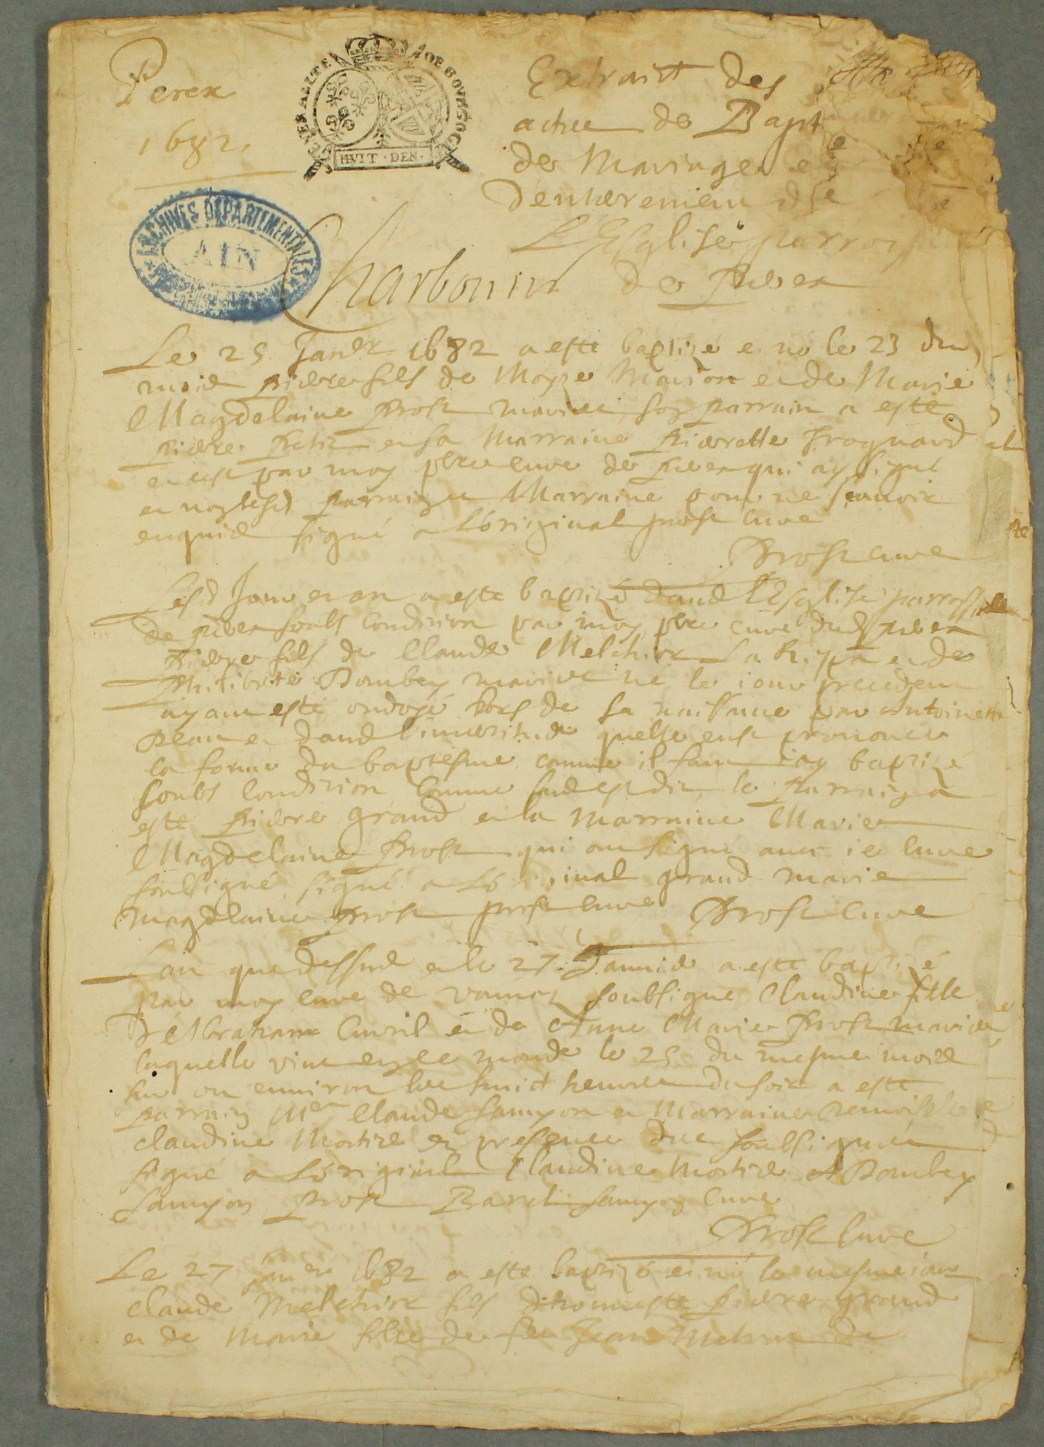 Perex
1682
GENERALITE DE BOVRGOGNE
HVIT . DEN .
Extraict des
actes de Bapt
de Mariage e
denterrement
L'Esglise parro
de Perex
ARCHIVES DEPARTEMENTALES
AIN
Charbonnier
Le 25 Janer 1682 a esté baptizé e né le 23 du
mois pierre fils de Moyse Maison et de Marie
Magdelaine Prost mariez son parrain a esté
pierre petit et sa Marraine pierrette Troquard
et ce par moy pbre curé de perex qui ay signé
et non lesd parrain et Marraine pour ne scavoir
enquis signé a Loriginal prost curé
Prost curé
Lesd Jour et an a esté baptizé dans l'Esglise parrossialle
de perex soubs Condition par moy pbre curé dud perex
pierre fils de Claude Melchior et de
philiberte Dombey mariez né le jour precedent
ayant esté ondoyé lors de sa naissance par Antoinette
et dans l'incertitude quelle eust prononcé
la forme du baptesme comme il faut iay baptizé
soubs Condition comme sus est dit le parrain a
esté pierre grand et la marraine Marie
Magdelaine Prost qui ont signé avec ie curé
soubsigné signé a Lo iinal grand marie
magdelaine Prost prost curé Prost curé
Lan que dessus et le 27 Janvier a esté baptizé
par moy curé de soubsigné Claudine fille
D'Abraham Cuvil et de Anne Marie Prost mariez
laquelle vint en ce monde le 25 du mesme mois
sur ou environ les huict heures du soir a esté
parrain Mer Claude sampon et Marraine demoiselle
claudine Mortier en presence des soubsignés
signé a Loriginal Claudine Mortier Dombey
sampon Prost curé
Prost curé
Le 27 Janer 1682 a esté baptizé et né le mesme iour
claude Melchior fils d'honneste pierre grand
et de Marie fille de feu Jean de